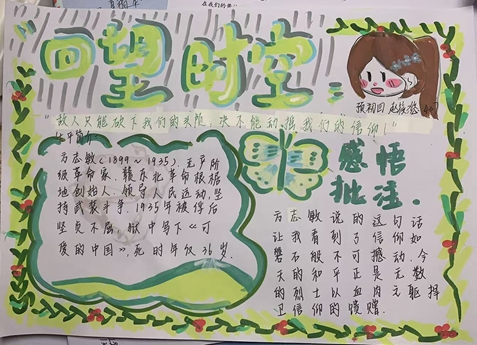 在我们的
回望时空
预初四
"敌人只能砍下我们的头颅 决不能动摇我们的信仰!"
生平简介
方志敏(1899~1935),无产阶
级革命家,赣东北革命根据
地创始人.领导人民运动,坚
持武装斗争.1935年被俘后
坚贞不屈.狱中写下《可
爱的中国》,死时年仅36岁.
感悟
批注.
方志敏说的这句话
让我看到了信仰如
磐石般不可撼动.今
天的和平正是无数
的烈士以血肉之躯捍
卫信仰的馈赠.